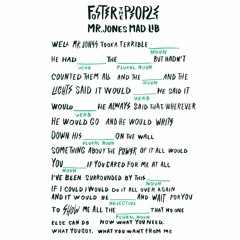 FOSTER THE PEOPLE
MR. JONES MAD LIB
WELL MR. JONES TOOK A TERRIBLE
NOUN
HE HAD THE BUT HADN'T
VERB PLURAL NOUN
COUNTED THEM ALL AND THE AND THE
NOUN
LIGHTS SAID IT WOULD HE SAID IT
VERB
WOULD HE ALWAYS SAID THAT WHEREVER
HE WOULD GO AND HE WOULD WRITE
DOWN HIS ON THE WALL
PLURAL NOUN
SOMETHING ABOUT THE POWER OF IT ALL WOULD
YOU IF YOU CARED FOR ME AT ALL
NOUN
I'VE BEEN SURROUNDED BY THIS
NOUN
IF I COULD I WOULD DO IT ALL OVER AGAIN
AND IT WOULD BE AND WAIT FOR YOU
ADJECTIVE
TO SHOW ME ALL THE THAT NO ONE
PLURAL NOUN
ELSE CAN DO NOW WHAT YOU NEED,
WHAT YOU GOT, WHAT YOU WANT FROM ME